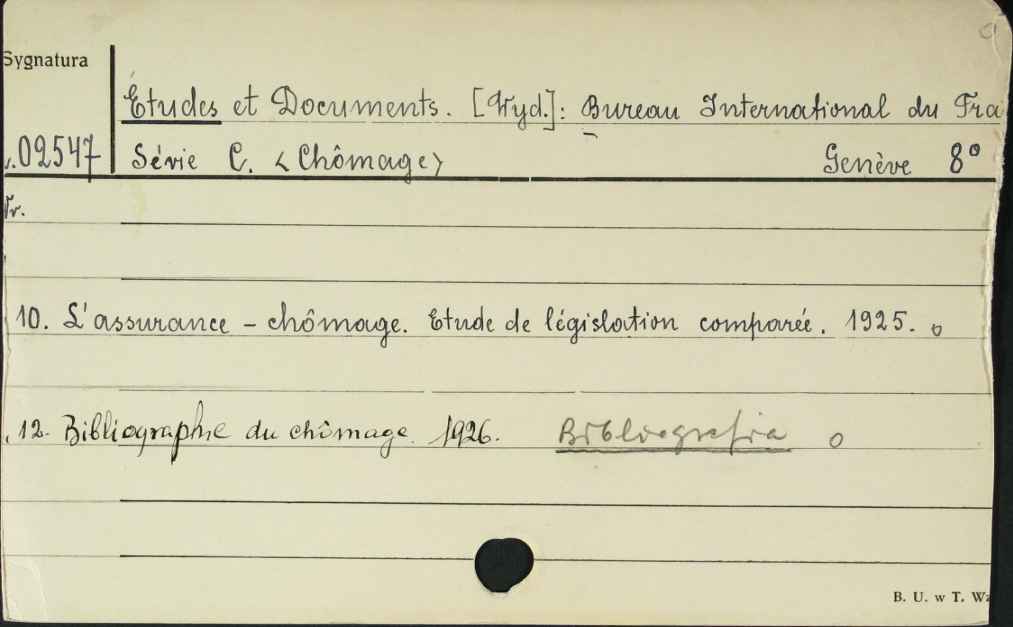 Sygnatura
Études et Documents. [Wyd.]: Bureau International du Tra
02547 Série C. <Chômage> Genève 8°
Nr.
10. L'assurance - chômage. Etude de législation comparée. 1925. o
12. Bibliographie du chômage. 1926. Bibliografia o
B. U. w T. Wz